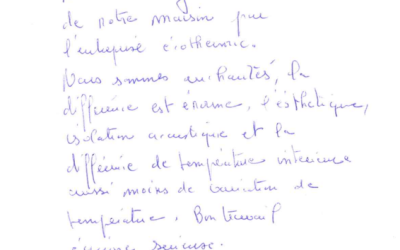 de notre maison par
l'entreprise isothermic.
Nous sommes enchantés, la
différence est énorme, l'esthétique,
isolation acoustique et la
différence de température intérieure
aussi moins de variation de
température. Bon travail
équipe sérieuse.